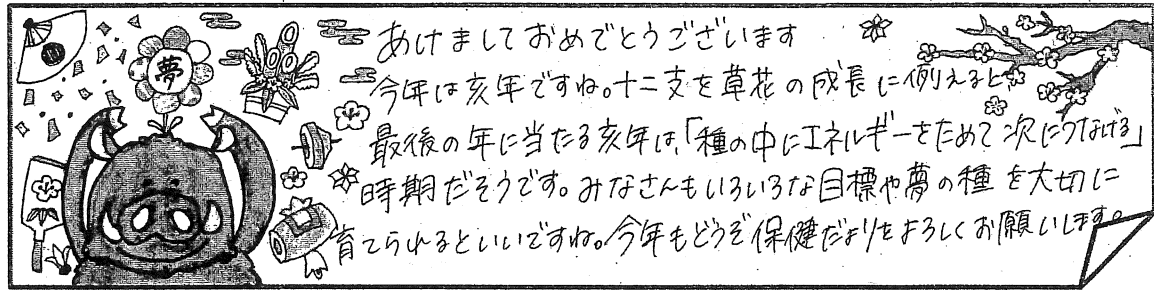 夢
あけましておめでとうございます
今年は亥年ですね。十二支を草花の成長に例えると、
最後の年に当たる亥年は、「種の中にエネルギーをためて次につなげる」
時期だそうです。みなさんもいろいろな目標や夢の種を大切に
育てられるといいですね。今年もどうぞ保健だよりをよろしくお願いします。